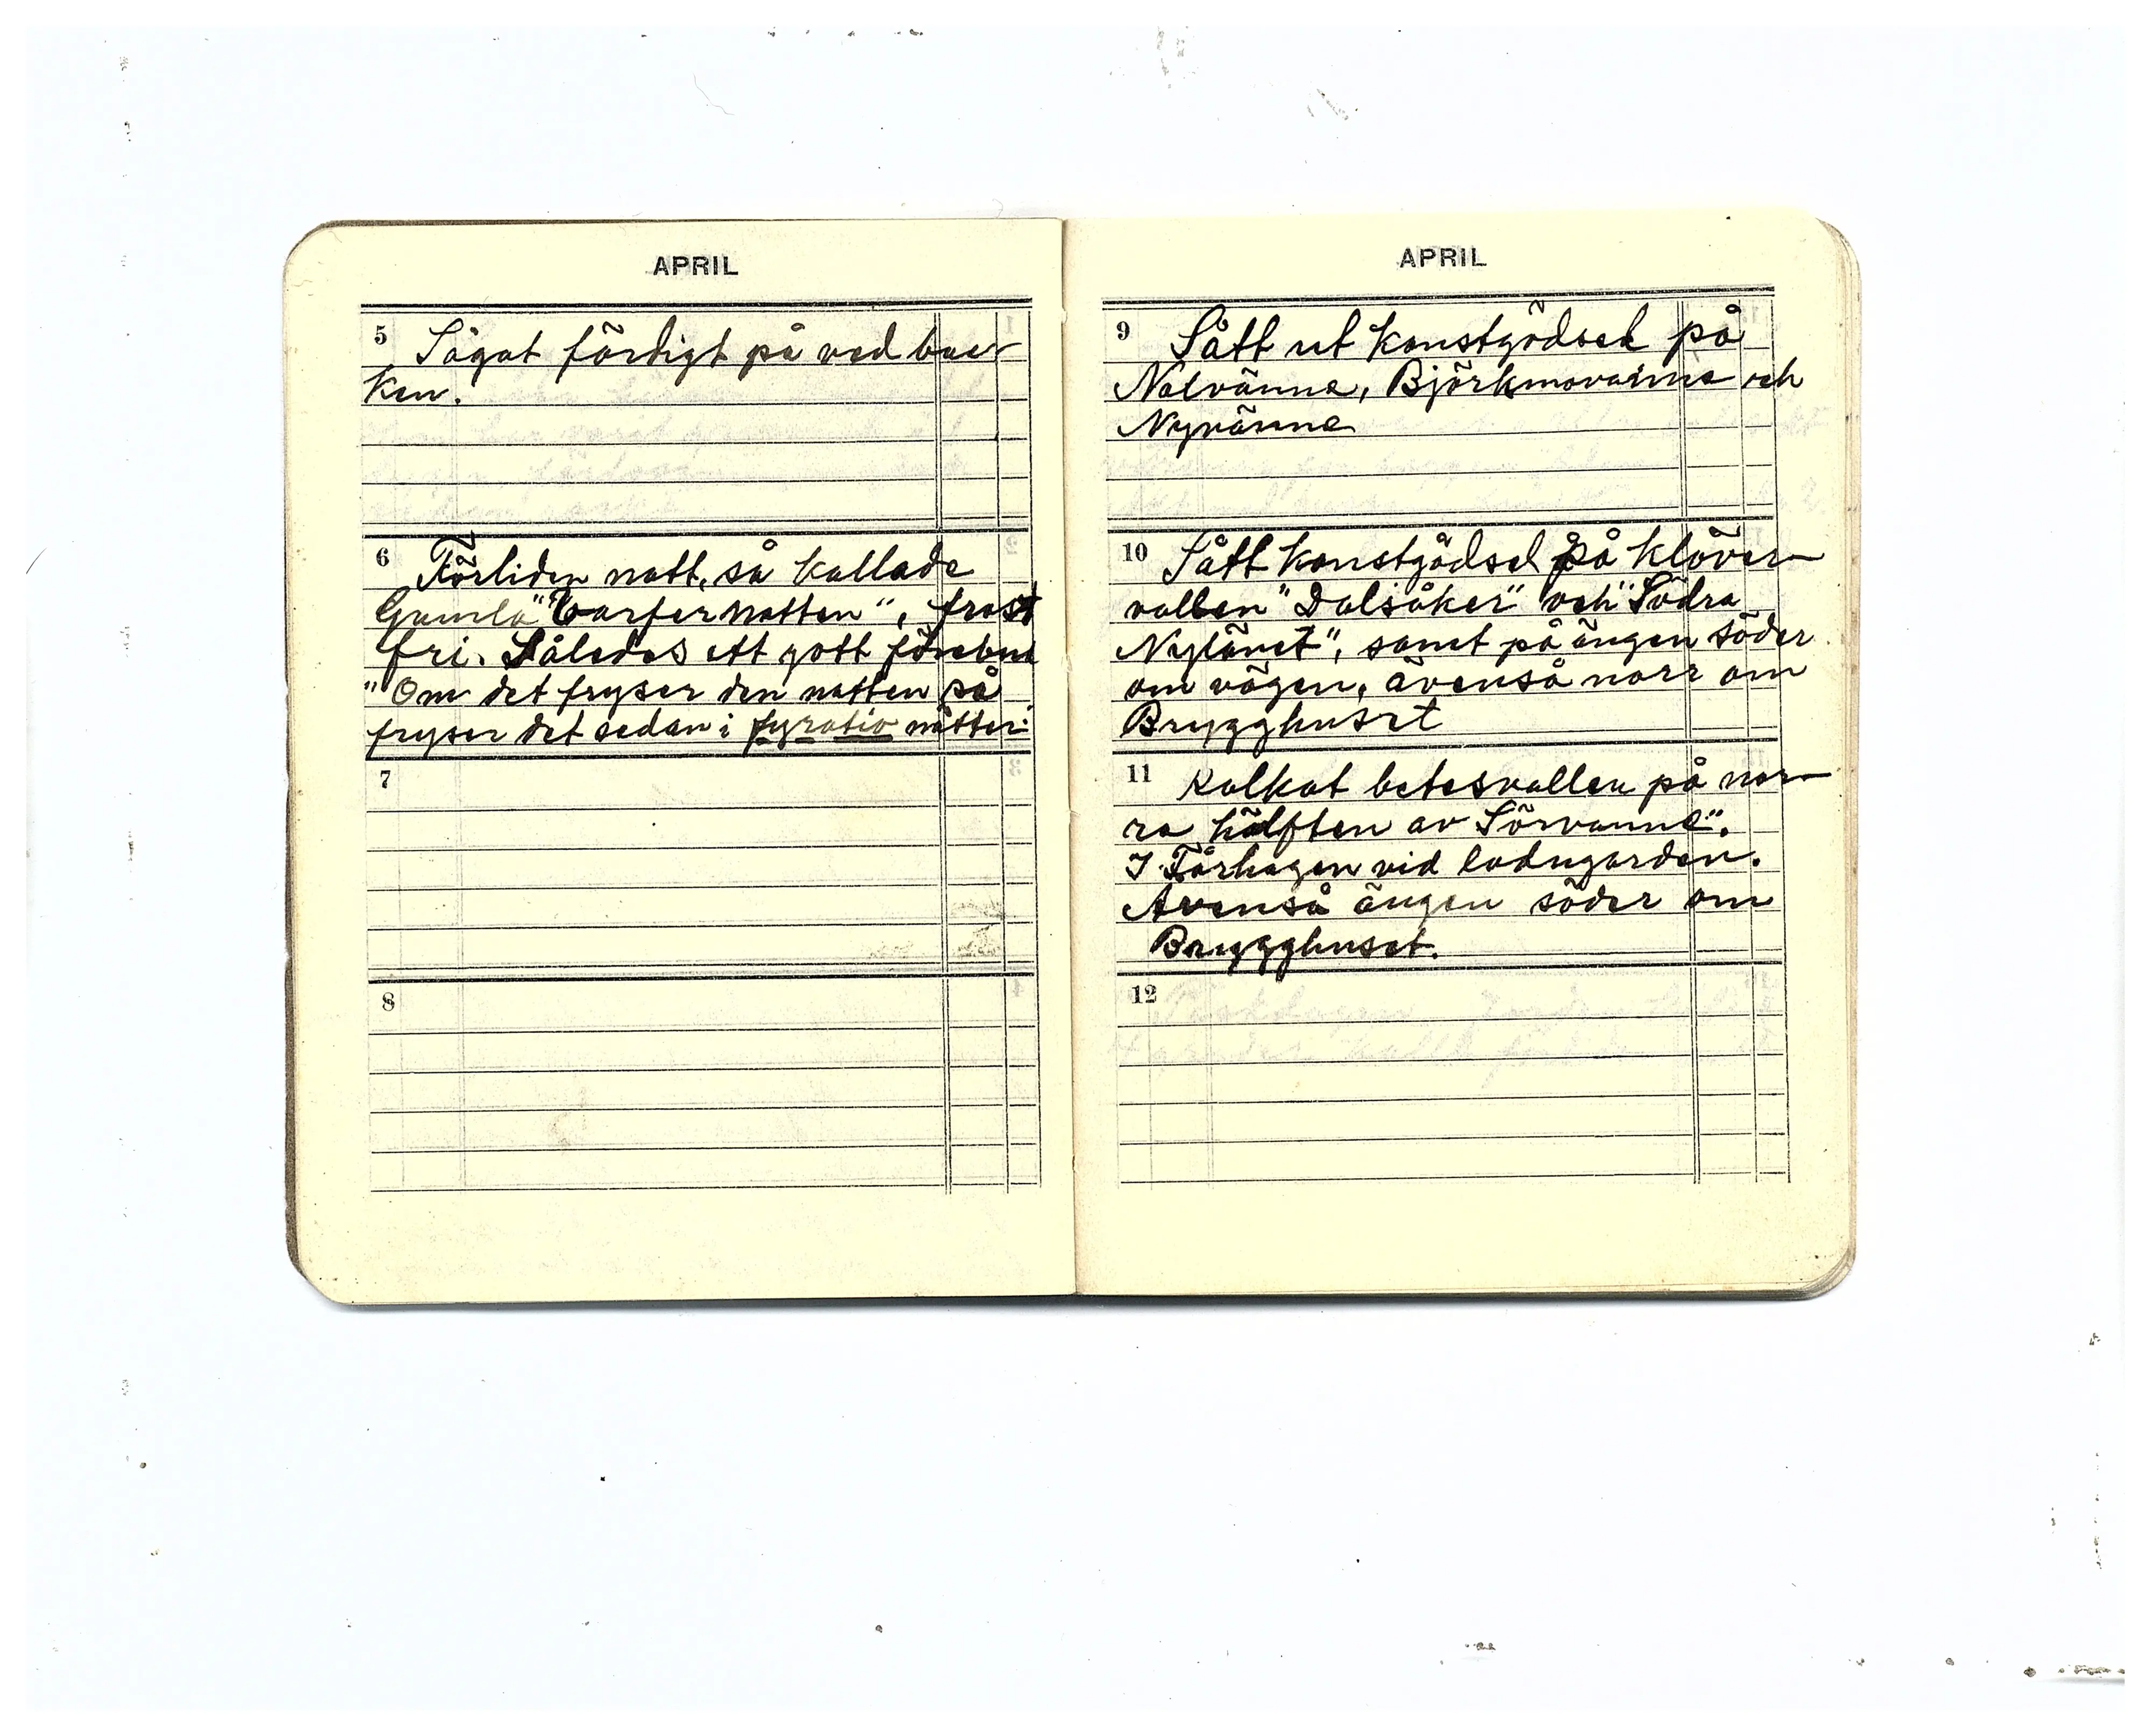 APRIL
5 Sågat färdigt på ved bac-
ken.
6 Förliden natt, så kallade
Gamla "Varfernatten", frost
fri. Således ett gott förebud
"Om det fryser den natten så
fryser det sedan i fyratio nätter"
7
8
APRIL
9 Sått ut konstgödsel på
Nolvänna, Björkmovänna och
Nyvänna
10 Sått konstgödsel på klöver-
vallen "Dalsåker" och "Södra
Nylänet", samt på ängen söder
om vägen, ävenså norr om
Brygghuset
11 Kalkat betesvallen på nor-
ra hälften av Sörvanna".
I Fårhagen vid ladugården.
Ävenså ängen söder om
Brygghuset.
12